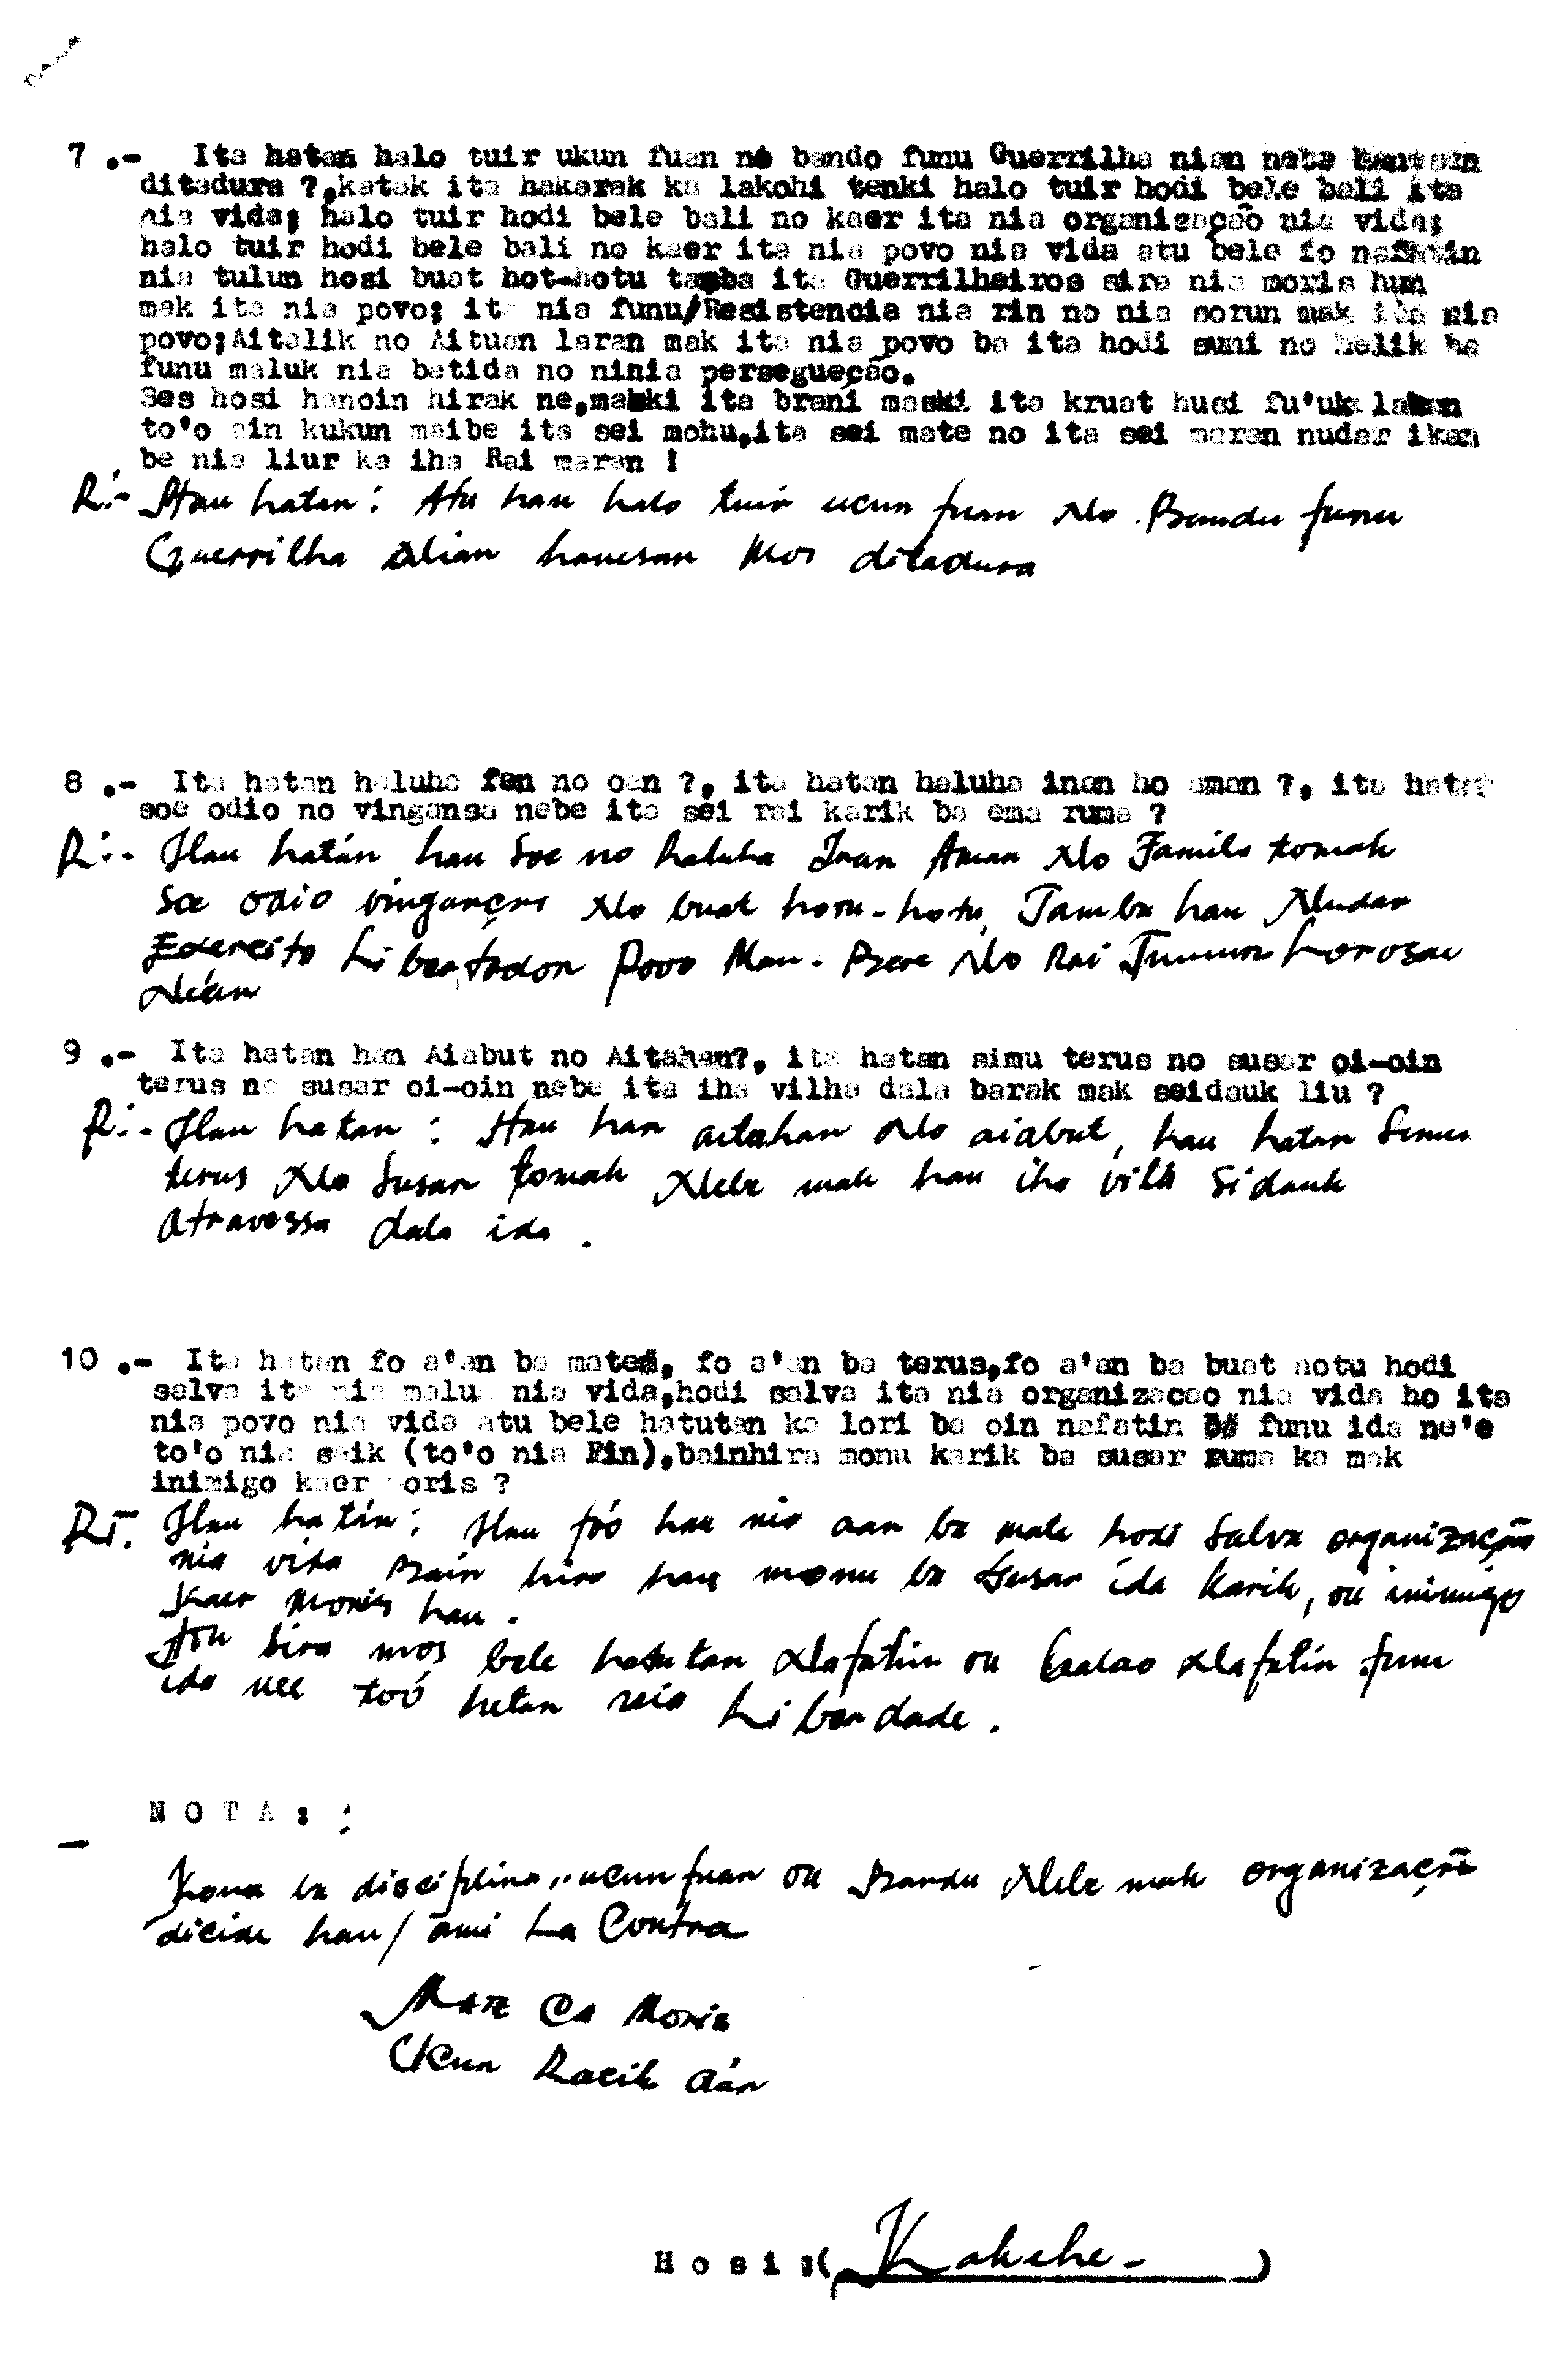 7 .- Ita hatan halo tuir ukun fuan no bando funu Guerrilha nian nebe hanesan
ditadura ?,katak ita hakarak ka lakohi tenki halo tuir hodi bele bali ita
nia vida; halo tuir hodi bele bali no kaer ita nia organização nia vida;
halo tuir hodi bele bali no kaer ita nia povo nia vida atu bele fo nafatin
nia tulun hosi buat hot-hotu tamba ita Guerrilheiros sira nia moris hun
mak ita nia povo; ita nia funu/Resistencia nia rin no nia sorun mak ita nia
povo;Aitalik no Aituan laran mak ita nia povo ba ita hodi suni no helik ba
funu maluk nia batida no ninia persegueção.
Ses hosi hanoin hirak ne,maski ita brani maski ita kruat husi fu'uk lahan
to'o ain kukun maibe ita sei mohu,ita sei mate no ita sei maran nudar ikan
be nia liur ka iha Rai maran !
R:- Hau hatan: Atu hau halo tuir ucun fuan No Bandu funu
Guerrilha Nian hanesan Mos ditadura
8 .- Ita hatan haluha fen no oan ?, ita hatan haluha inan ho aman ?, ita hatan
soe odio no vingansa nebe ita sei rai karik ba ema ruma ?
R:- Hau hatán hau Soe no haluha Inan Aman No Familo tomak
Soe odio vingança No buat hotu-hotu, Tamba hau Nudar
Exercito Libertador Povo Mau-Bere No Rai Timor Lorosae
Nián
9 .- Ita hatan han Aiabut no Aitahan?, ita hatan simu terus no susar oi-oin
terus no susar oi-oin nebe ita iha vilha dala barak mak seidauk liu ?
R:- Hau hatan : Hau han aitahan No aiabut, hau hatan Simu
terus No Susar tomak Nebe mak hau iha vila Sidauk
atravessa dala ida .
10 .- Ita hatan fo a'an ba mate, fo a'an ba terus,fo a'an ba buat hotu hodi
salva ita nia malu nia vida,hodi salva ita nia organizacao nia vida ho ita
nia povo nia vida atu bele hatutan ka lori ba oin nafatin funu ida ne'e
to'o nia saik (to'o nia Fin),bainhira monu karik ba susar ruma ka mak
inimigo kaer moris ?
R:- Hau hatán: Hau fóo hau nia aan ba mate hodi Salva organização
nia vida Bain hira hau monu ba Susar ida Karik, ou inimigo
Kaer Moris hau .
Atu Sira mos bele hatutan Nafatin ou halao Nafatin funu
ida nee toó hetan nia Liberdade .
N O T A : :
Kona ba disciplina,, ucun fuan ou Bandu Nebe mak organização
dicide hau/ ami La Contra
Mate Ca Moris
Ukun Racik Aán
H o s i :( Kakehe- )